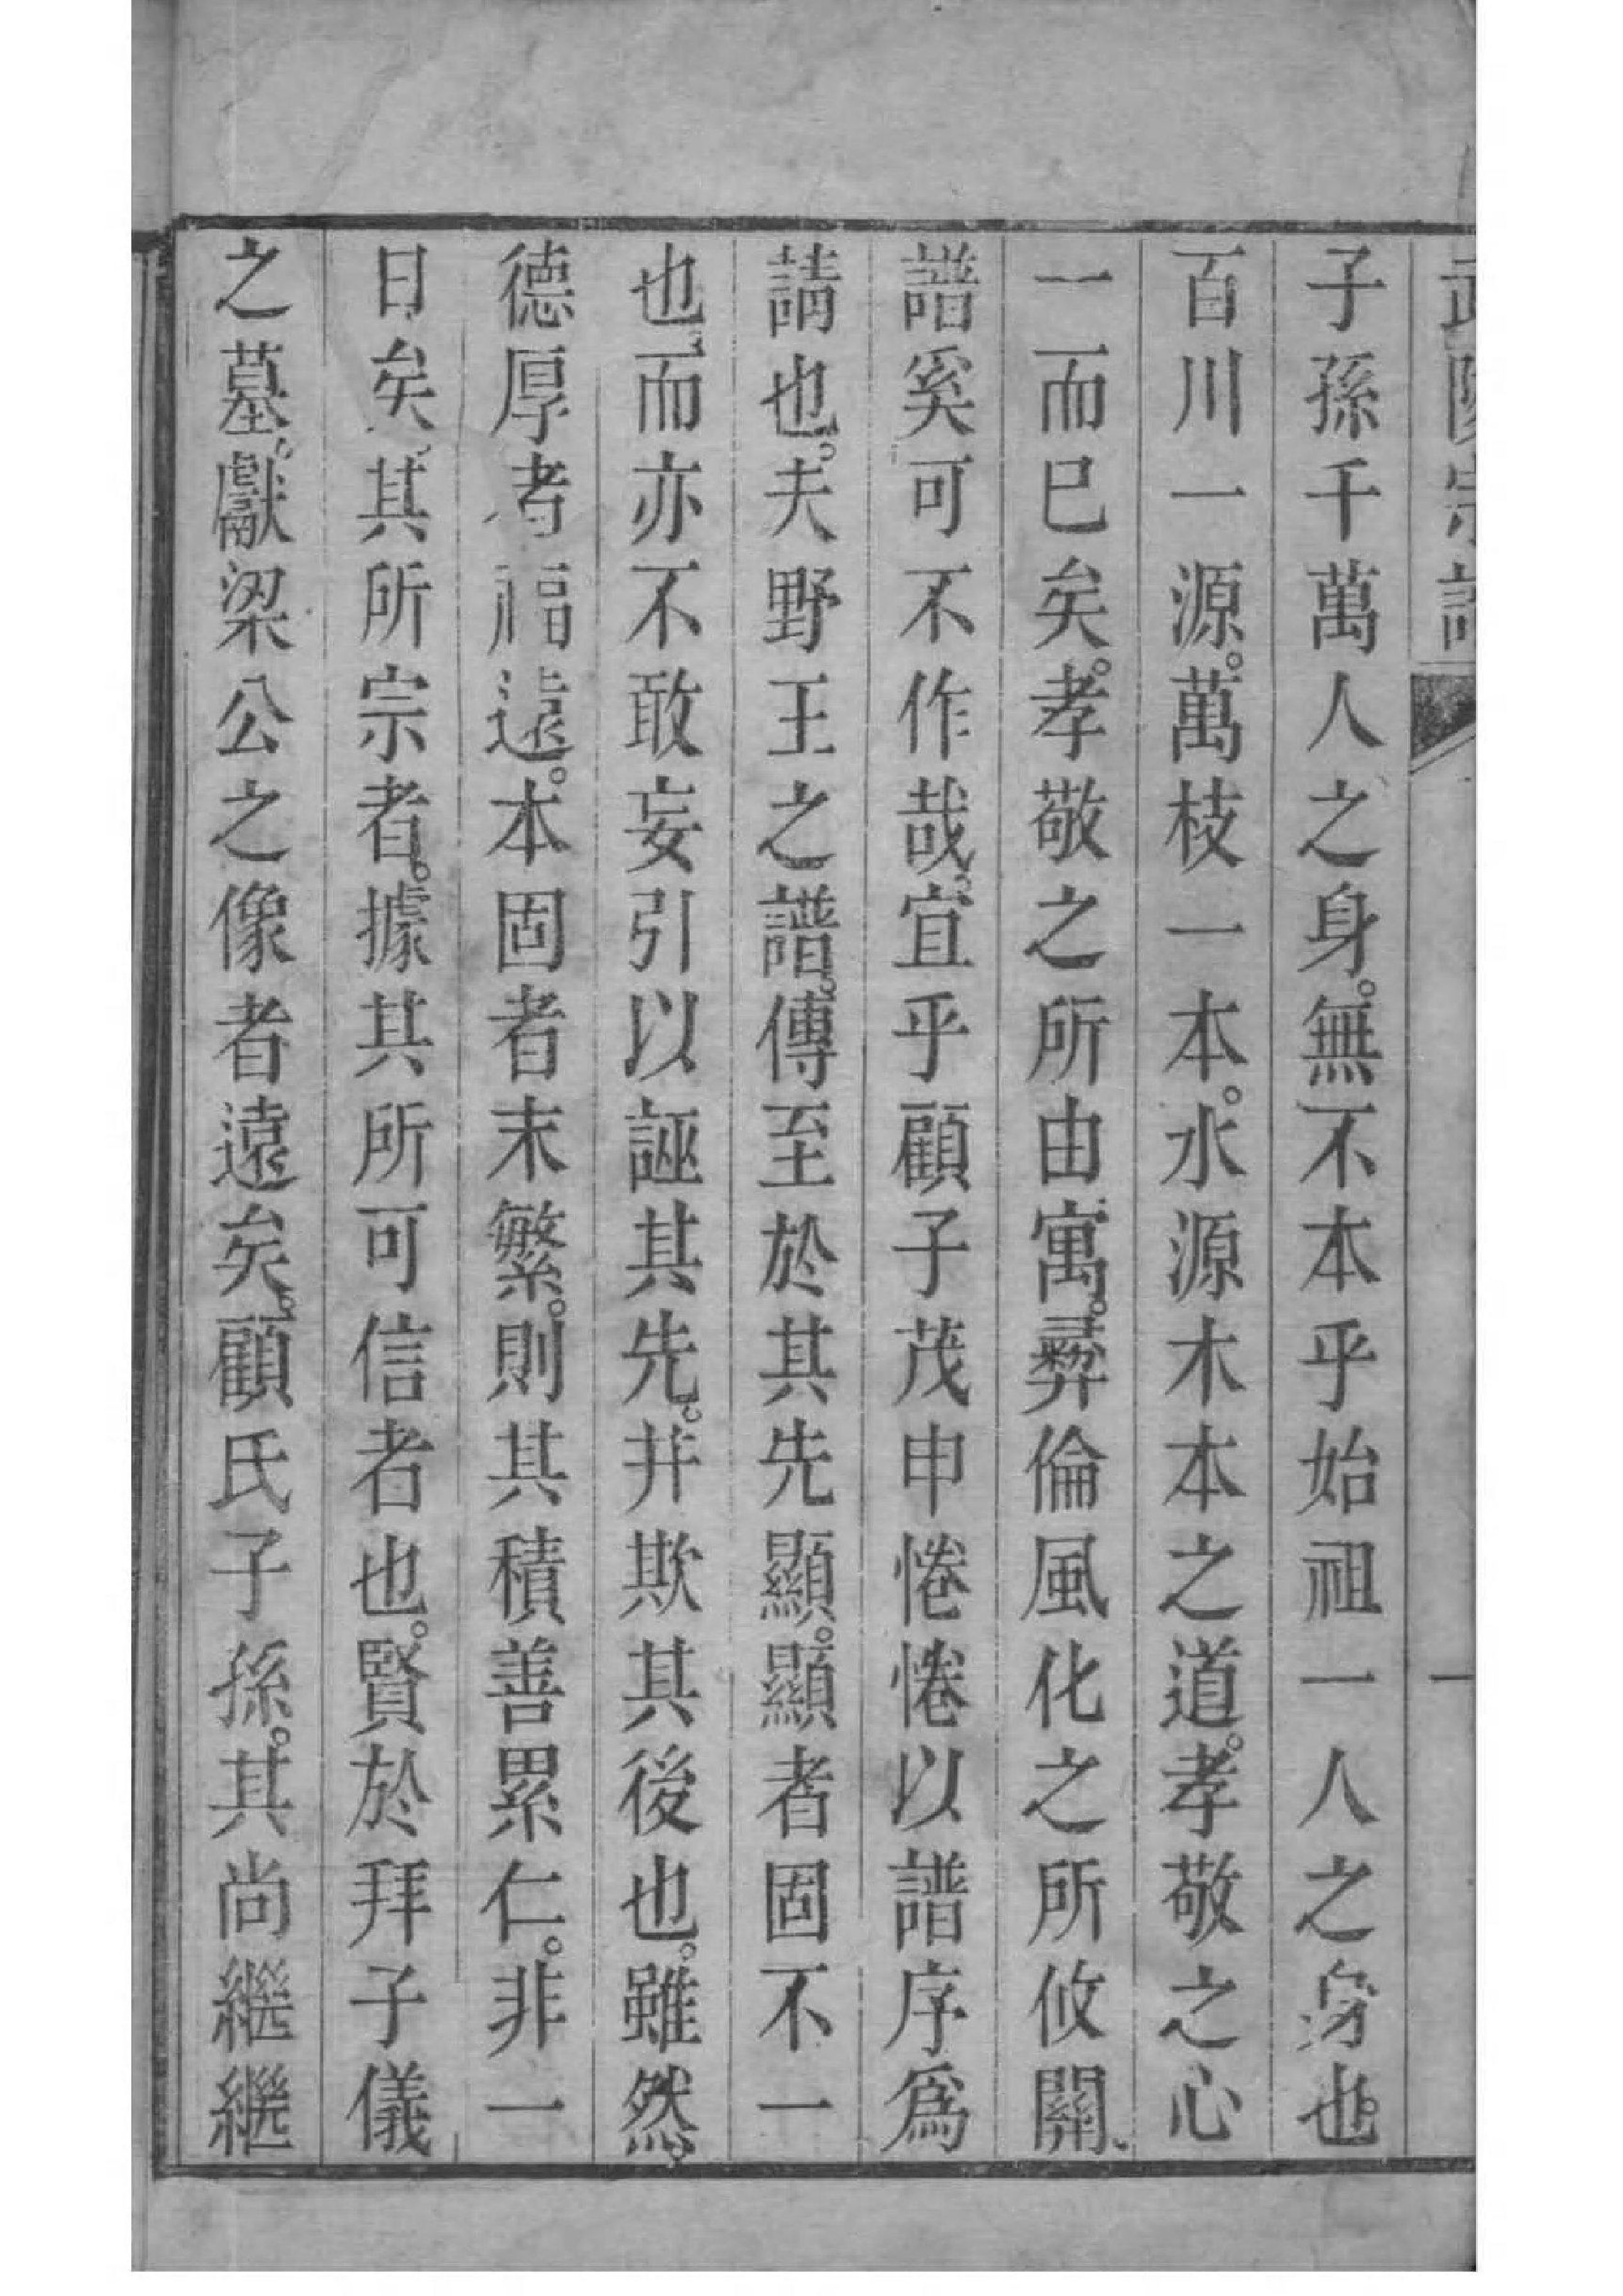 武陵宗譜 一
子孫千萬人之身。無不本乎始祖一人之身也。
百川一源。萬枝一本。水源木本之道。孝敬之心
一而巳矣。孝敬之所由寓。彛倫風化之所攸關、
譜奚可不作哉。宜乎顧子茂申惓惓以譜序爲
請也。夫野王之譜。傳至於其先顯。顯者固不一
也、而亦不敢妄引以誣其先。并欺其後也。雖然。
德厚者福遠。本固者末繁。則其積善累仁。非一
日矣。其所宗者。據其所可信者也。賢於拜子儀
之墓。獻梁公之像者遠矣。顧氏子孫。其尚繼繼